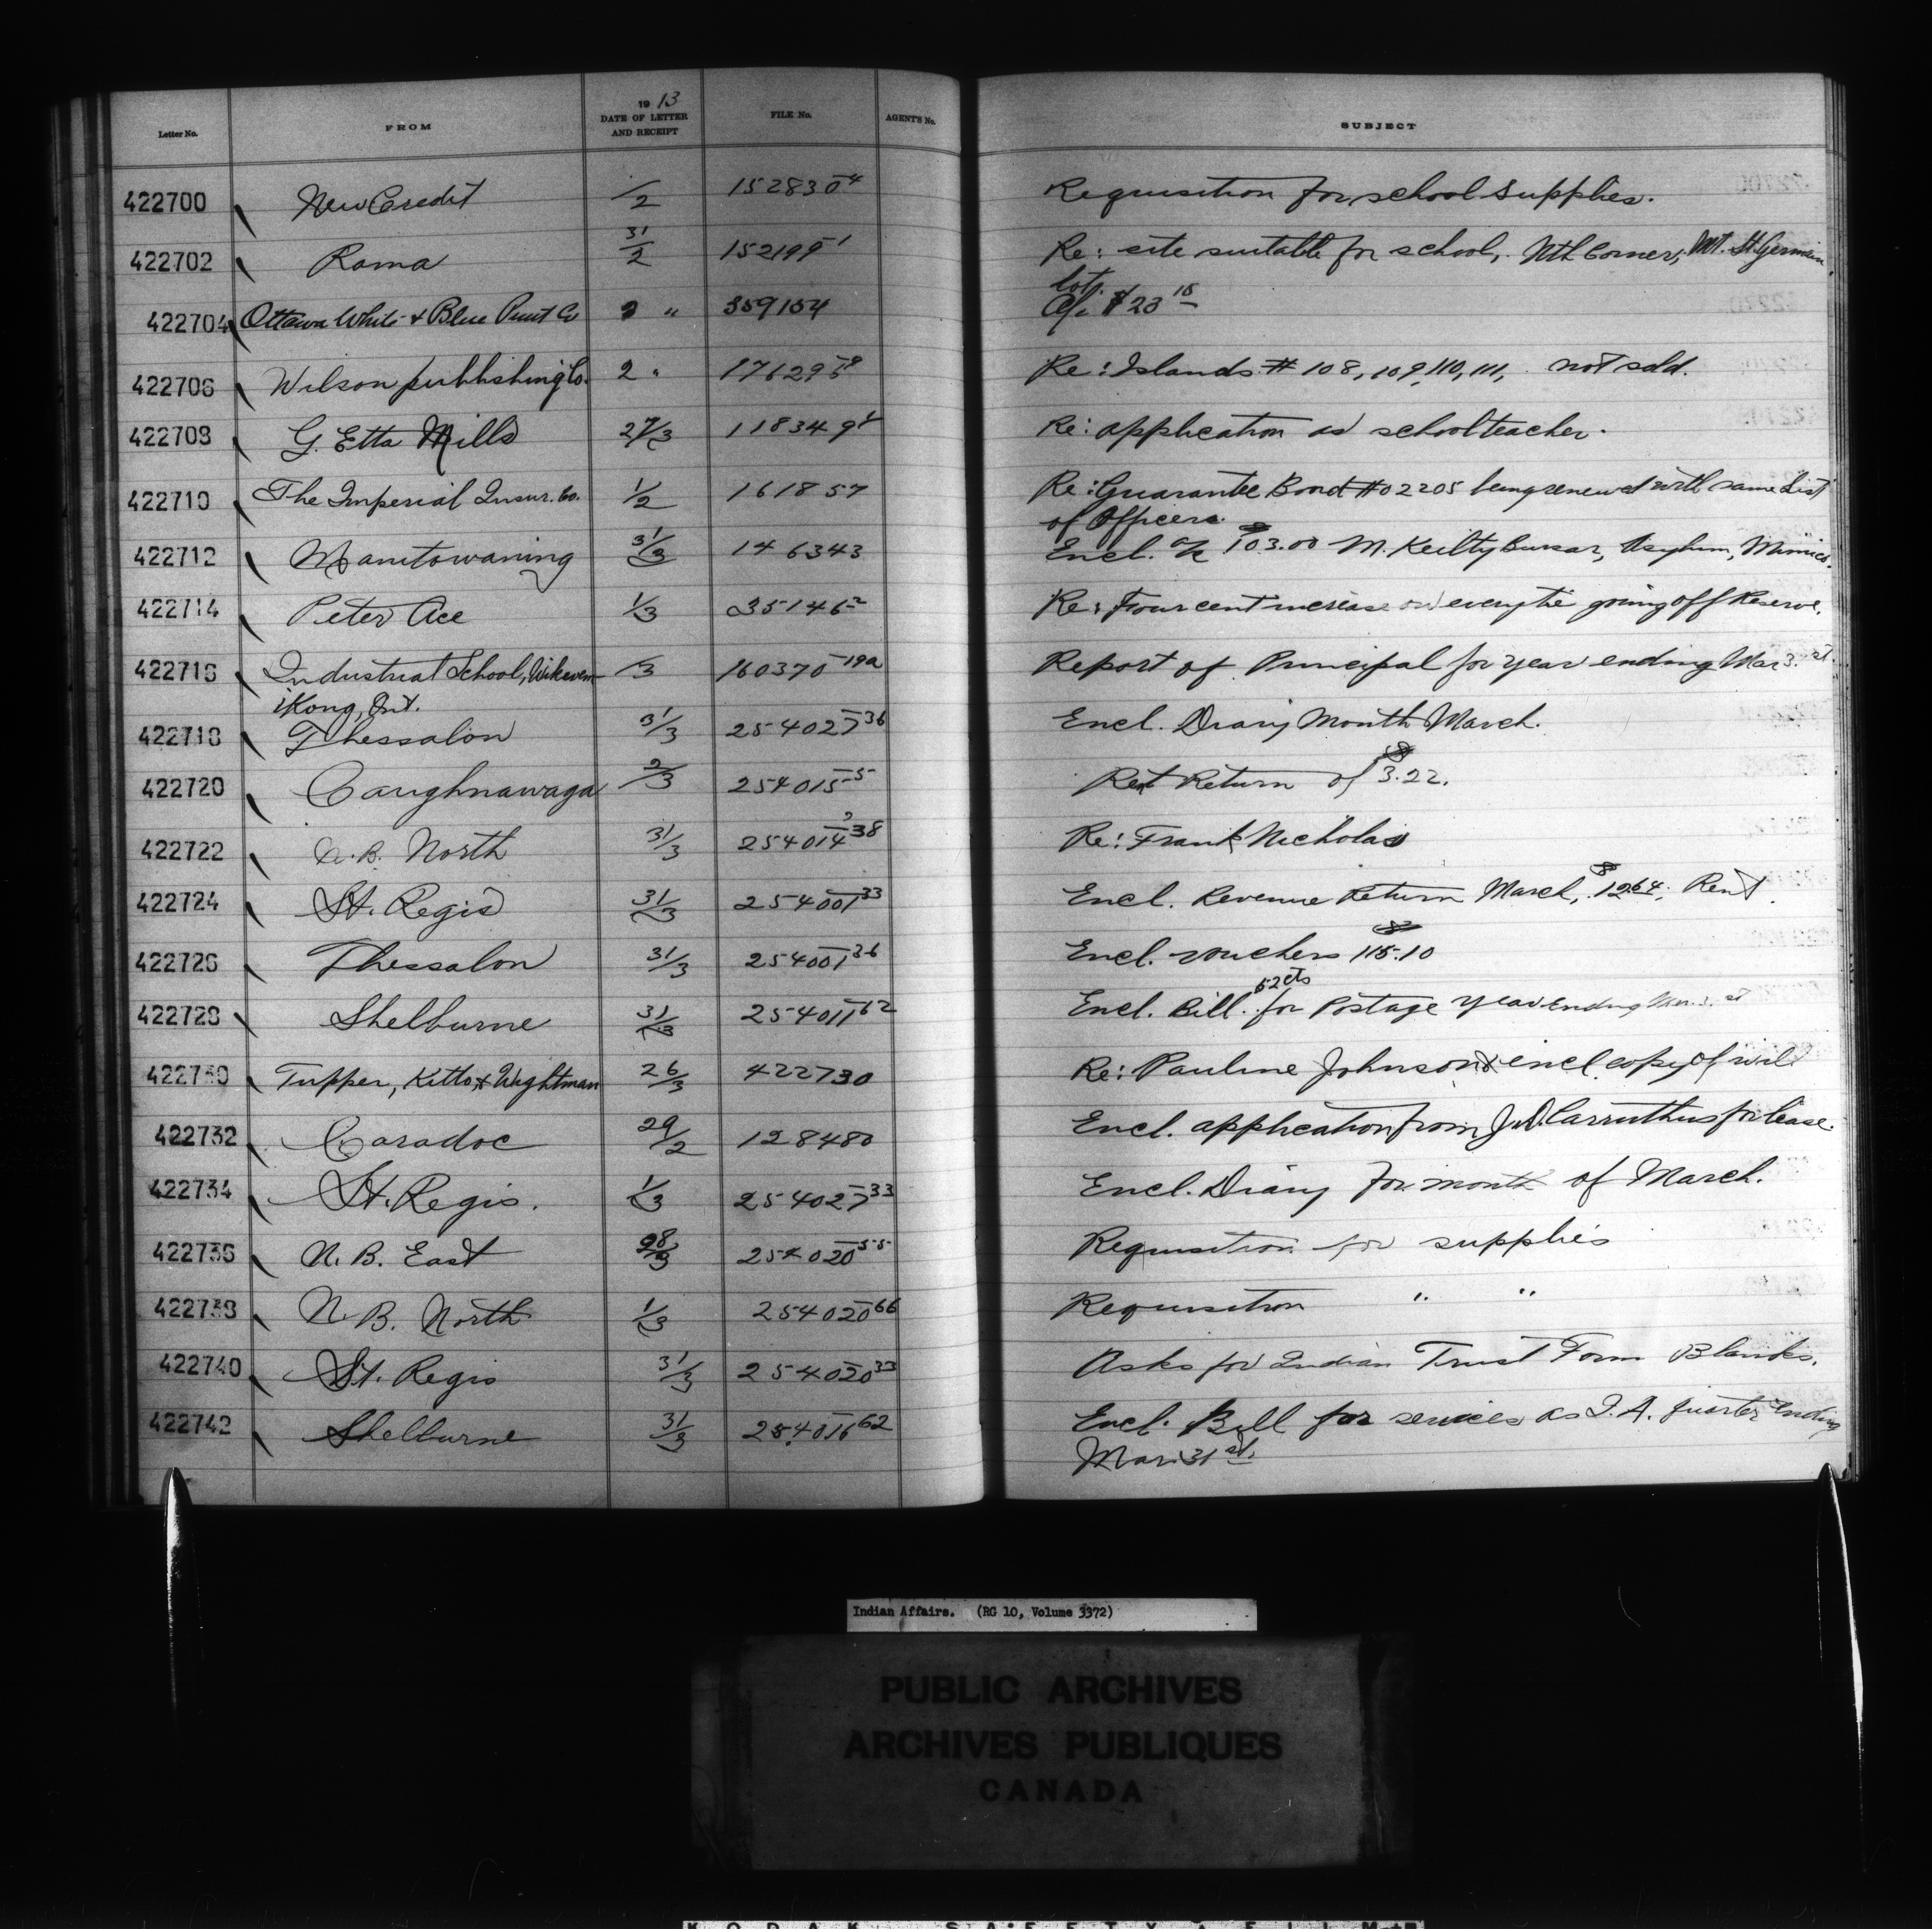 Letter No. FROM 1913 DATE OF LETTER AND RECEIPT FILE No. AGENT'S No. SUBJECT
422700 New Credit /2 152830-4 Requisition for school supplies.
422702 Roma 31/2 152199-1 Re: site suitable for school, Nth Corner, Mt. St. Germain
lot.
422704 Ottawa White & Blue Print Co 2 " 359154 a/c $23 15
422706 Wilson publishing Co. 2 " Re: Islands # 108, 109, 110, 111, not sold.
422708 G. Etta Mills 27/3 118349 Re: application as school teacher.
422710 The Imperial Insur. Co. 1/2 161857 Re: Guarantee Bond #02205 being renewed with same List
of Officers.
422712 Manitowaning 31/3 146343 Encl. a/c $103.00 M. Keilty Bursar, Asylum, Mimico.
422714 Peter Ace 1/3 35146-2 Re: Four cent increase on every tie going off Reserve.
422716 Industrial School, Wikwem- /3 160370-19a Report of Principal for year ending Mar 3 st.
iKong, Ont.
422718 Thessalon 31/3 254027-36 Encl. Diary Month March.
422720 Caughnawaga 2/3 254015-5 Rent Return of $3.22.
422722 N.B. North 31/3 254014-38 Re: Frank Nicholas
422724 St. Regis 31/3 254001-33 Encl. Revenue Return March, $12 64. Rent.
422726 Thessalon 31/3 254001-36 Encl. vouchers $115.10
422728 Shelburne 31/3 254011-62 Encl. Bill 52cts for Postage year ending Mar. 3. st
422730 Tupper, Kitto, & Wightman 26/3 422730 Re: Pauline Johnson & encl. copy of will
422732 Caradoc 29/2 128480 Encl. application from Carruthers for lease.
422734 St. Regis. 1/3 254027-33 Encl. Diary for month of March.
422736 N. B. East 28/3 254020-55 Requisition for supplies
422738 N. B. North 1/3 254020-66 Requisition " "
422740 St. Regis 31/3 254020-33 Asks for Indian Trust Form Blanks.
422742 Shelburne 31/3 254016-62 Encl. Bill for services as I.A. quarter ending
Mar. 31st.
Indian Affairs. (RG 10, Volume 3372)
PUBLIC ARCHIVES
ARCHIVES PUBLIQUES
CANADA
KODAK SAFETY FILM